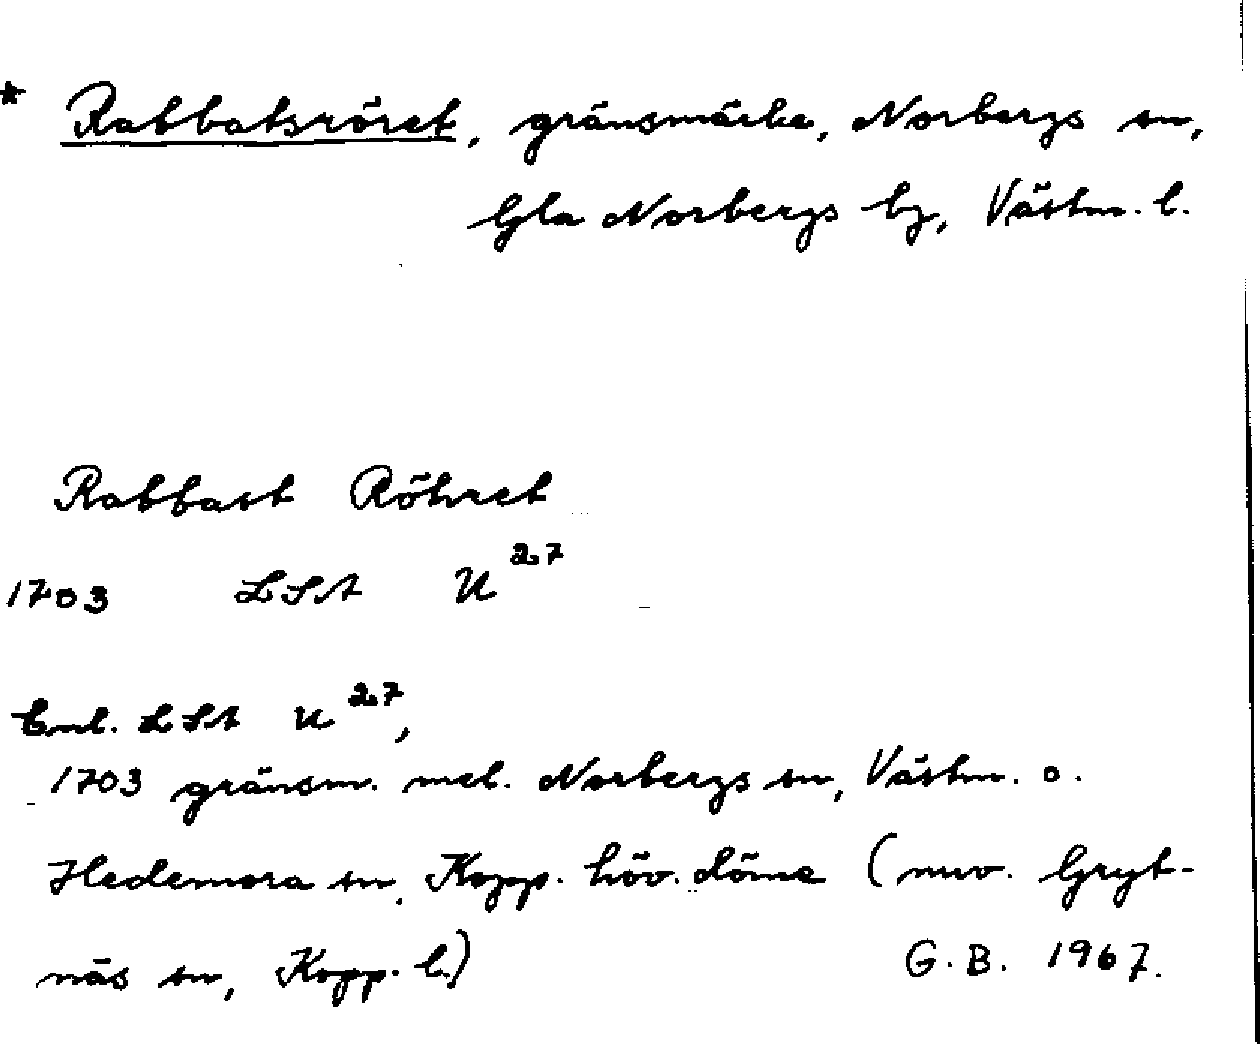 * Rabbatsröret, gränsmärke, Norbergs sn,
Gla Norbergs bg, Västm. l.
Rabbast Röhret
1703 LSA U 27
Enl. LSA U 27,
1703 gränsm. mel. Norbergs sn, Västm. o.
Hedemora sn, Kopp. höv.döme (nuv. Gryt-
näs sn, Kopp. l.)
G.B. 1967.